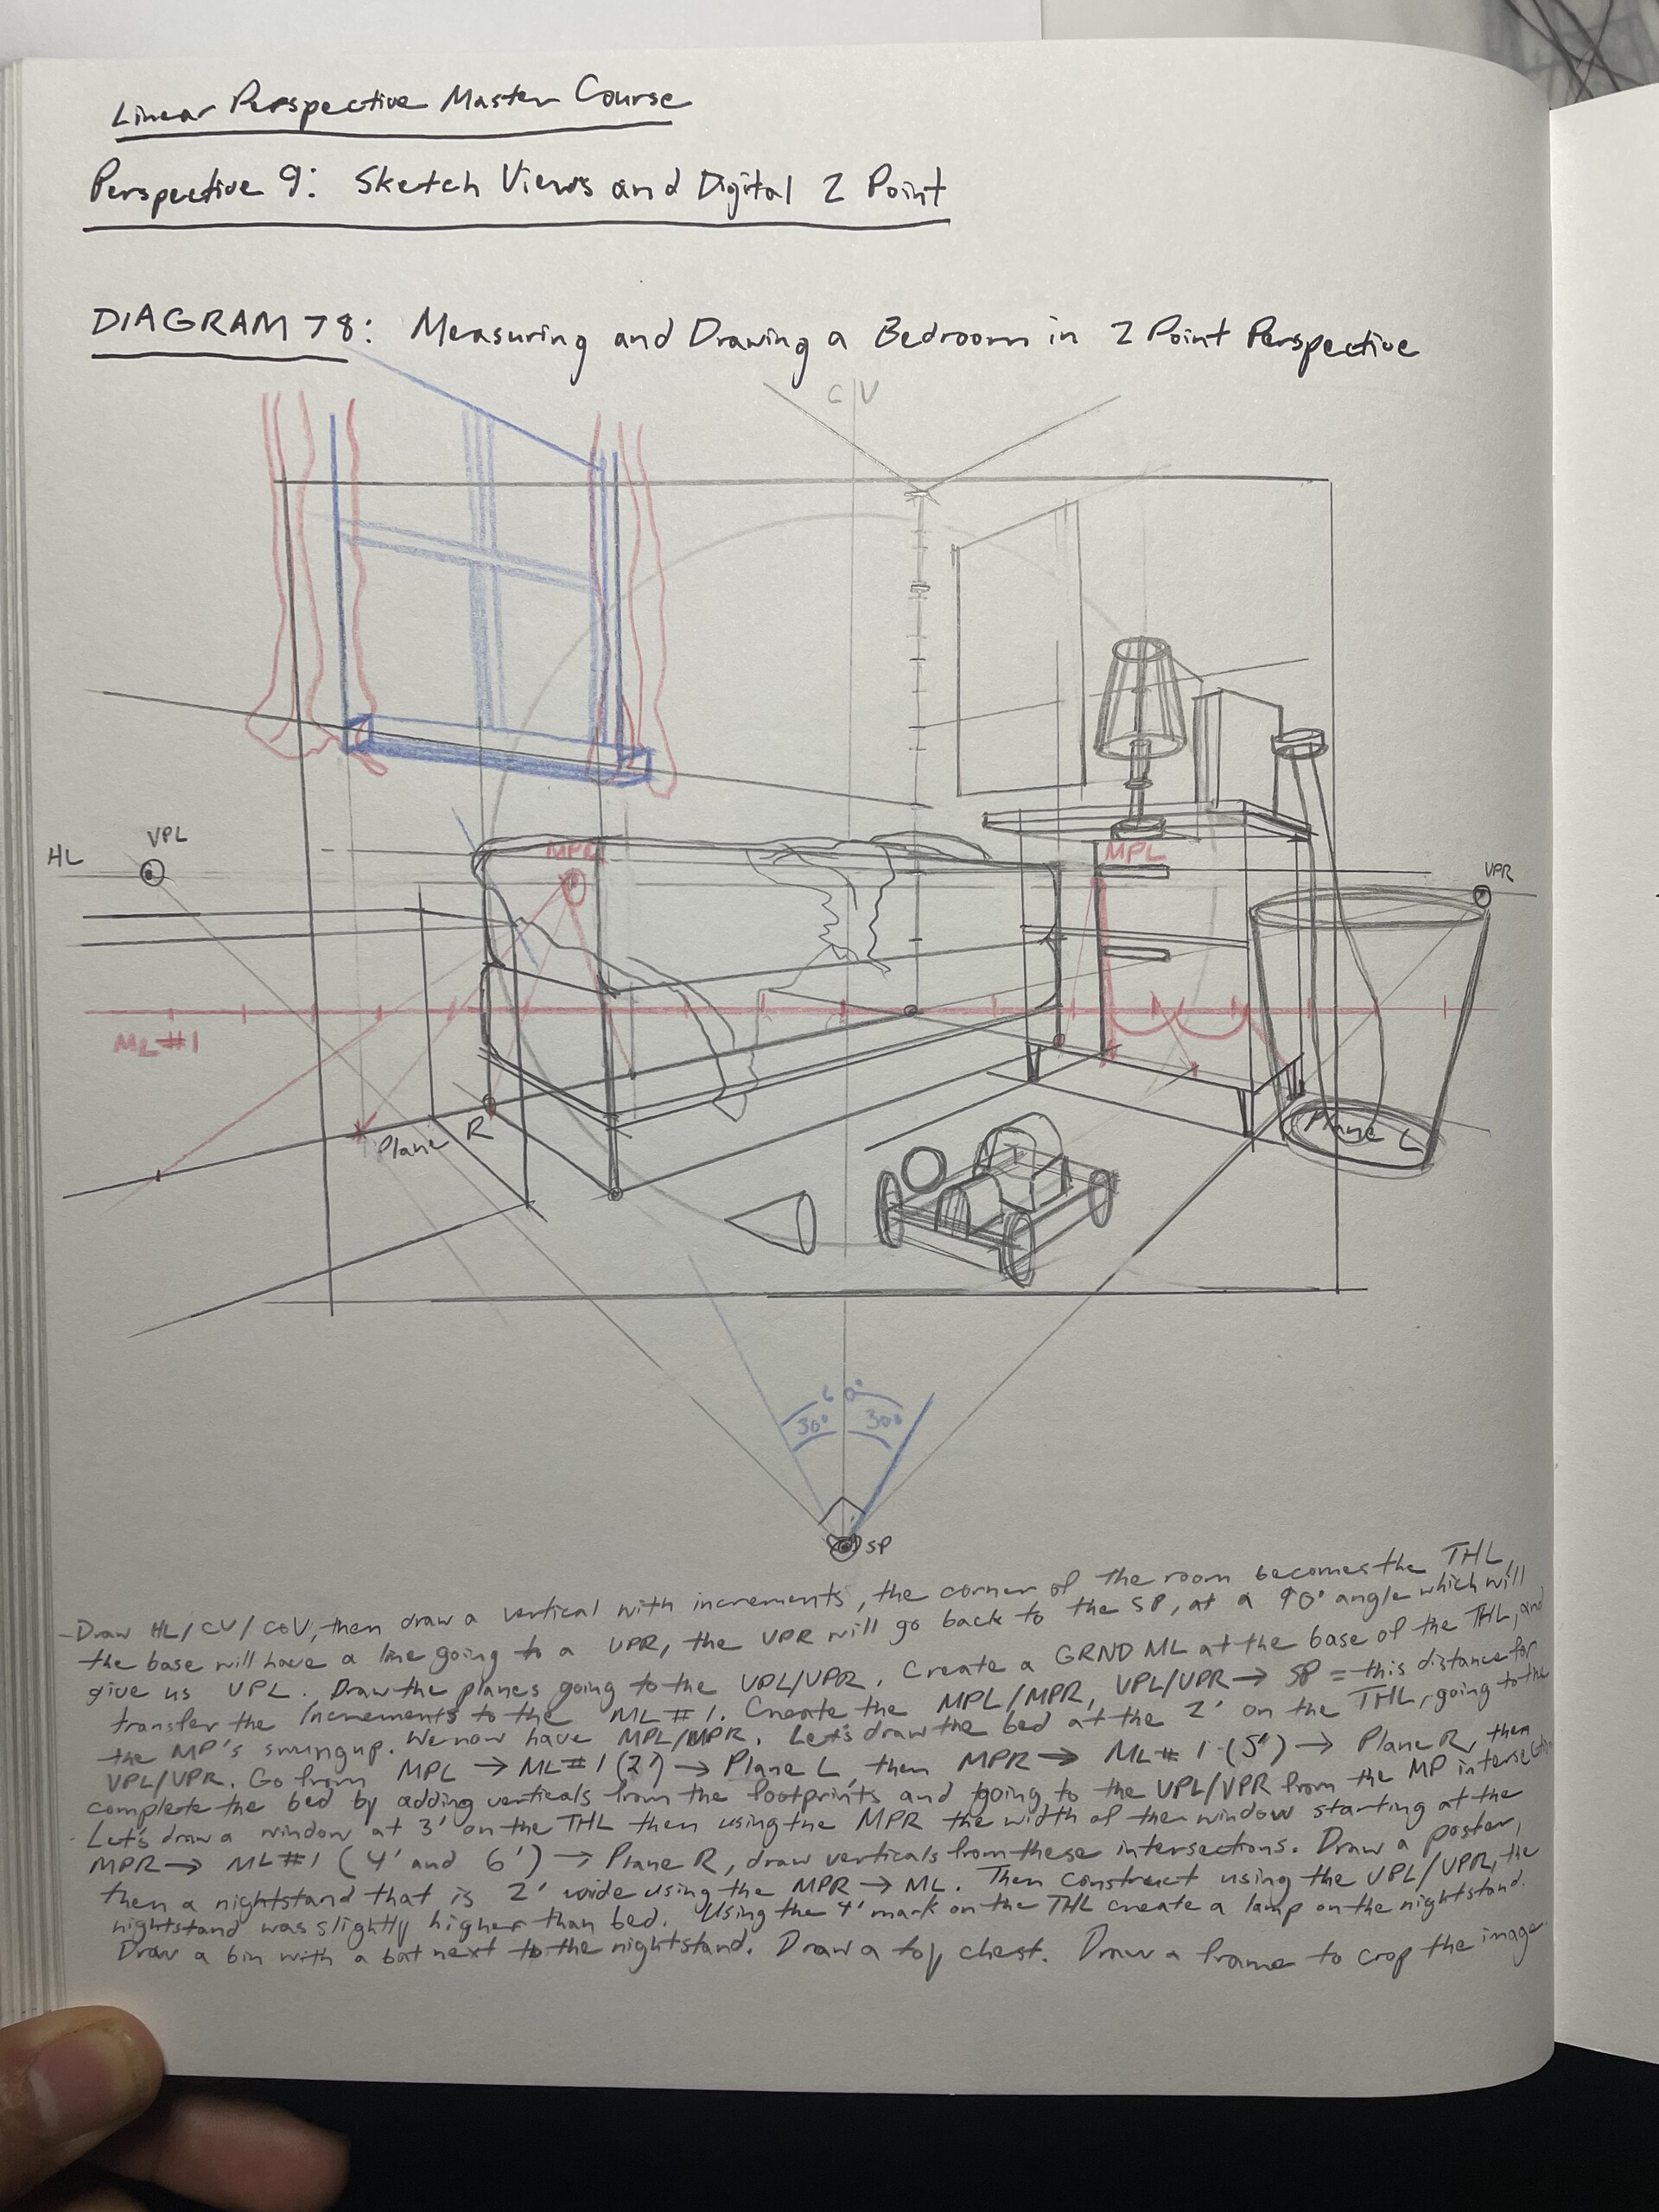 Linear Perspective Master Course
Perspective 9: Sketch Views and Digital 2 Point
DIAGRAM 78: Measuring and Drawing a Bedroom in 2 Point Perspective
CV
HL
VPL
MPR
MPL
VPR
ML #1
Plane R
Plane L
60°
30° 30°
SP
- Draw HL/CV/COV, then draw a vertical with increments, the corner of the room becomes the THL,
the base will have a line going to a VPR, the VPR will go back to the SP, at a 90° angle which will
give us VPL. Draw the planes going to the VPL/VPR. Create a GRND ML at the base of the THL, and
transfer the increments to the ML #1. Create the MPL/MPR, VPL/VPR → SP = this distance for
the MP's swung up. We now have MPL/MPR. Let's draw the bed at the 2' on the THL, going to the
VPL/VPR. Go from MPL → ML #1 (2') → Plane L, then MPR → ML #1 (5') → Plane R, then
complete the bed by adding verticals from the footprints and going to the VPL/VPR from the MP intersection
- Let's draw a window at 3' on the THL then using the MPR the width of the window starting at the
MPR → ML #1 (4' and 6') → Plane R, draw verticals from these intersections. Draw a poster,
then a nightstand that is 2' wide using the MPR → ML. Then construct using the VPL/VPR, the
nightstand was slightly higher than bed. Using the 4' mark on the THL create a lamp on the nightstand.
Draw a bin with a bat next to the nightstand. Draw a toy chest. Draw a frame to crop the image